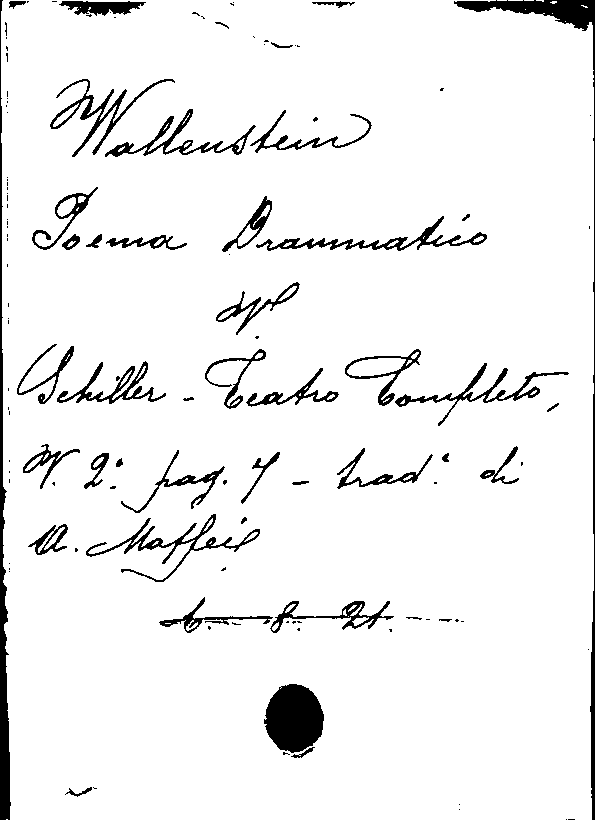 Wallenstein
Poema Drammatico
V.
Schiller - Teatro Completo,
V. 2º pag. 7 - trad.ᵉ di
A. Maffei
6. 8. 21.